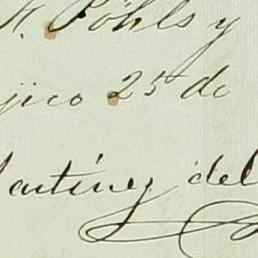 H. Pöhls y
jico 25 de
artínez del